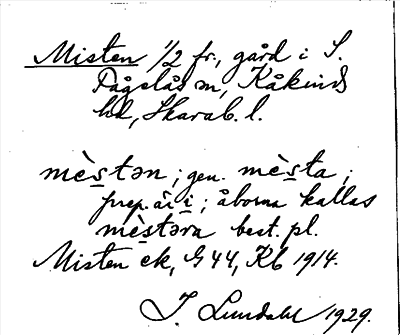 Misten 1/2 fr., gård i S.
Fågelås sn, Kåkinds
hd, Skarab. l.
mèstən; gen. mèsta;
prep. är i; åborna kallas
mèstəra best. pl.
Misten ek, G 44, Kb 1914.
J. Lundahl 1929.